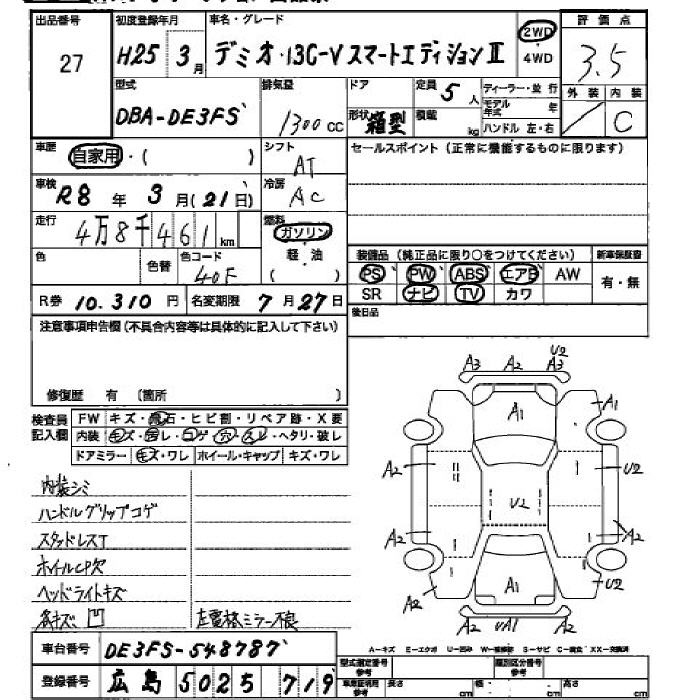 出品番号 初度登録年月 車名・グレード 評価点
27 H25年3月 デミオ・13C-V スマートエディションⅡ 2WD・4WD 3.5
型式 排気量 ドア 定員 5人 ディーラー・並行 外装 内装
DBA-DE3FS 1300cc 形状 箱型 積載 kg モデル年式 年 ハンドル 左・右 / C
車歴 自家用・( ) シフト AT セールスポイント(正常に機能するものに限ります)
車検 R8年3月(21日) 冷房 AC
走行 4万8千461km 燃料 ガソリン 軽・油 ( )
色 色替 色コード 40F 装備品(純正品に限り○をつけてください) 新車保証書
PS PW ABS エアB AW 有・無
SR ナビ TV カワ
R券 10.310円 名変期限 7月27日 後日品
注意事項申告欄(不具合内容等は具体的に記入して下さい)
修復歴 有 (箇所 )
検査員記入欄 FW キズ・飛石・ヒビ割・リペア跡・X要
内装 キズ・汚レ・コゲ・穴・スレ・ヘタリ・破レ
ドアミラー キズ・ワレ ホイール・キャップ キズ・ワレ
A3 A2 U2 A3
A1 A1
A2 U2
U2
A2 A2
A2 A1 U2
UA1
内装シミ
ハンドルグリップコゲ
スタッドレスT
ホイルCP欠
ヘッドライトキズ
各キズ凹 左電格ミラー不良
車台番号 DE3FS-548787
A-キズ E-エクボ U-凹み W-補修跡 S-サビ C-腐食 XX-交換済
登録番号 広島 502 5 719
型式指定番号 参考 類別区分番号 参考
車庫証明用 参考 長さ cm 幅 cm 高さ cm